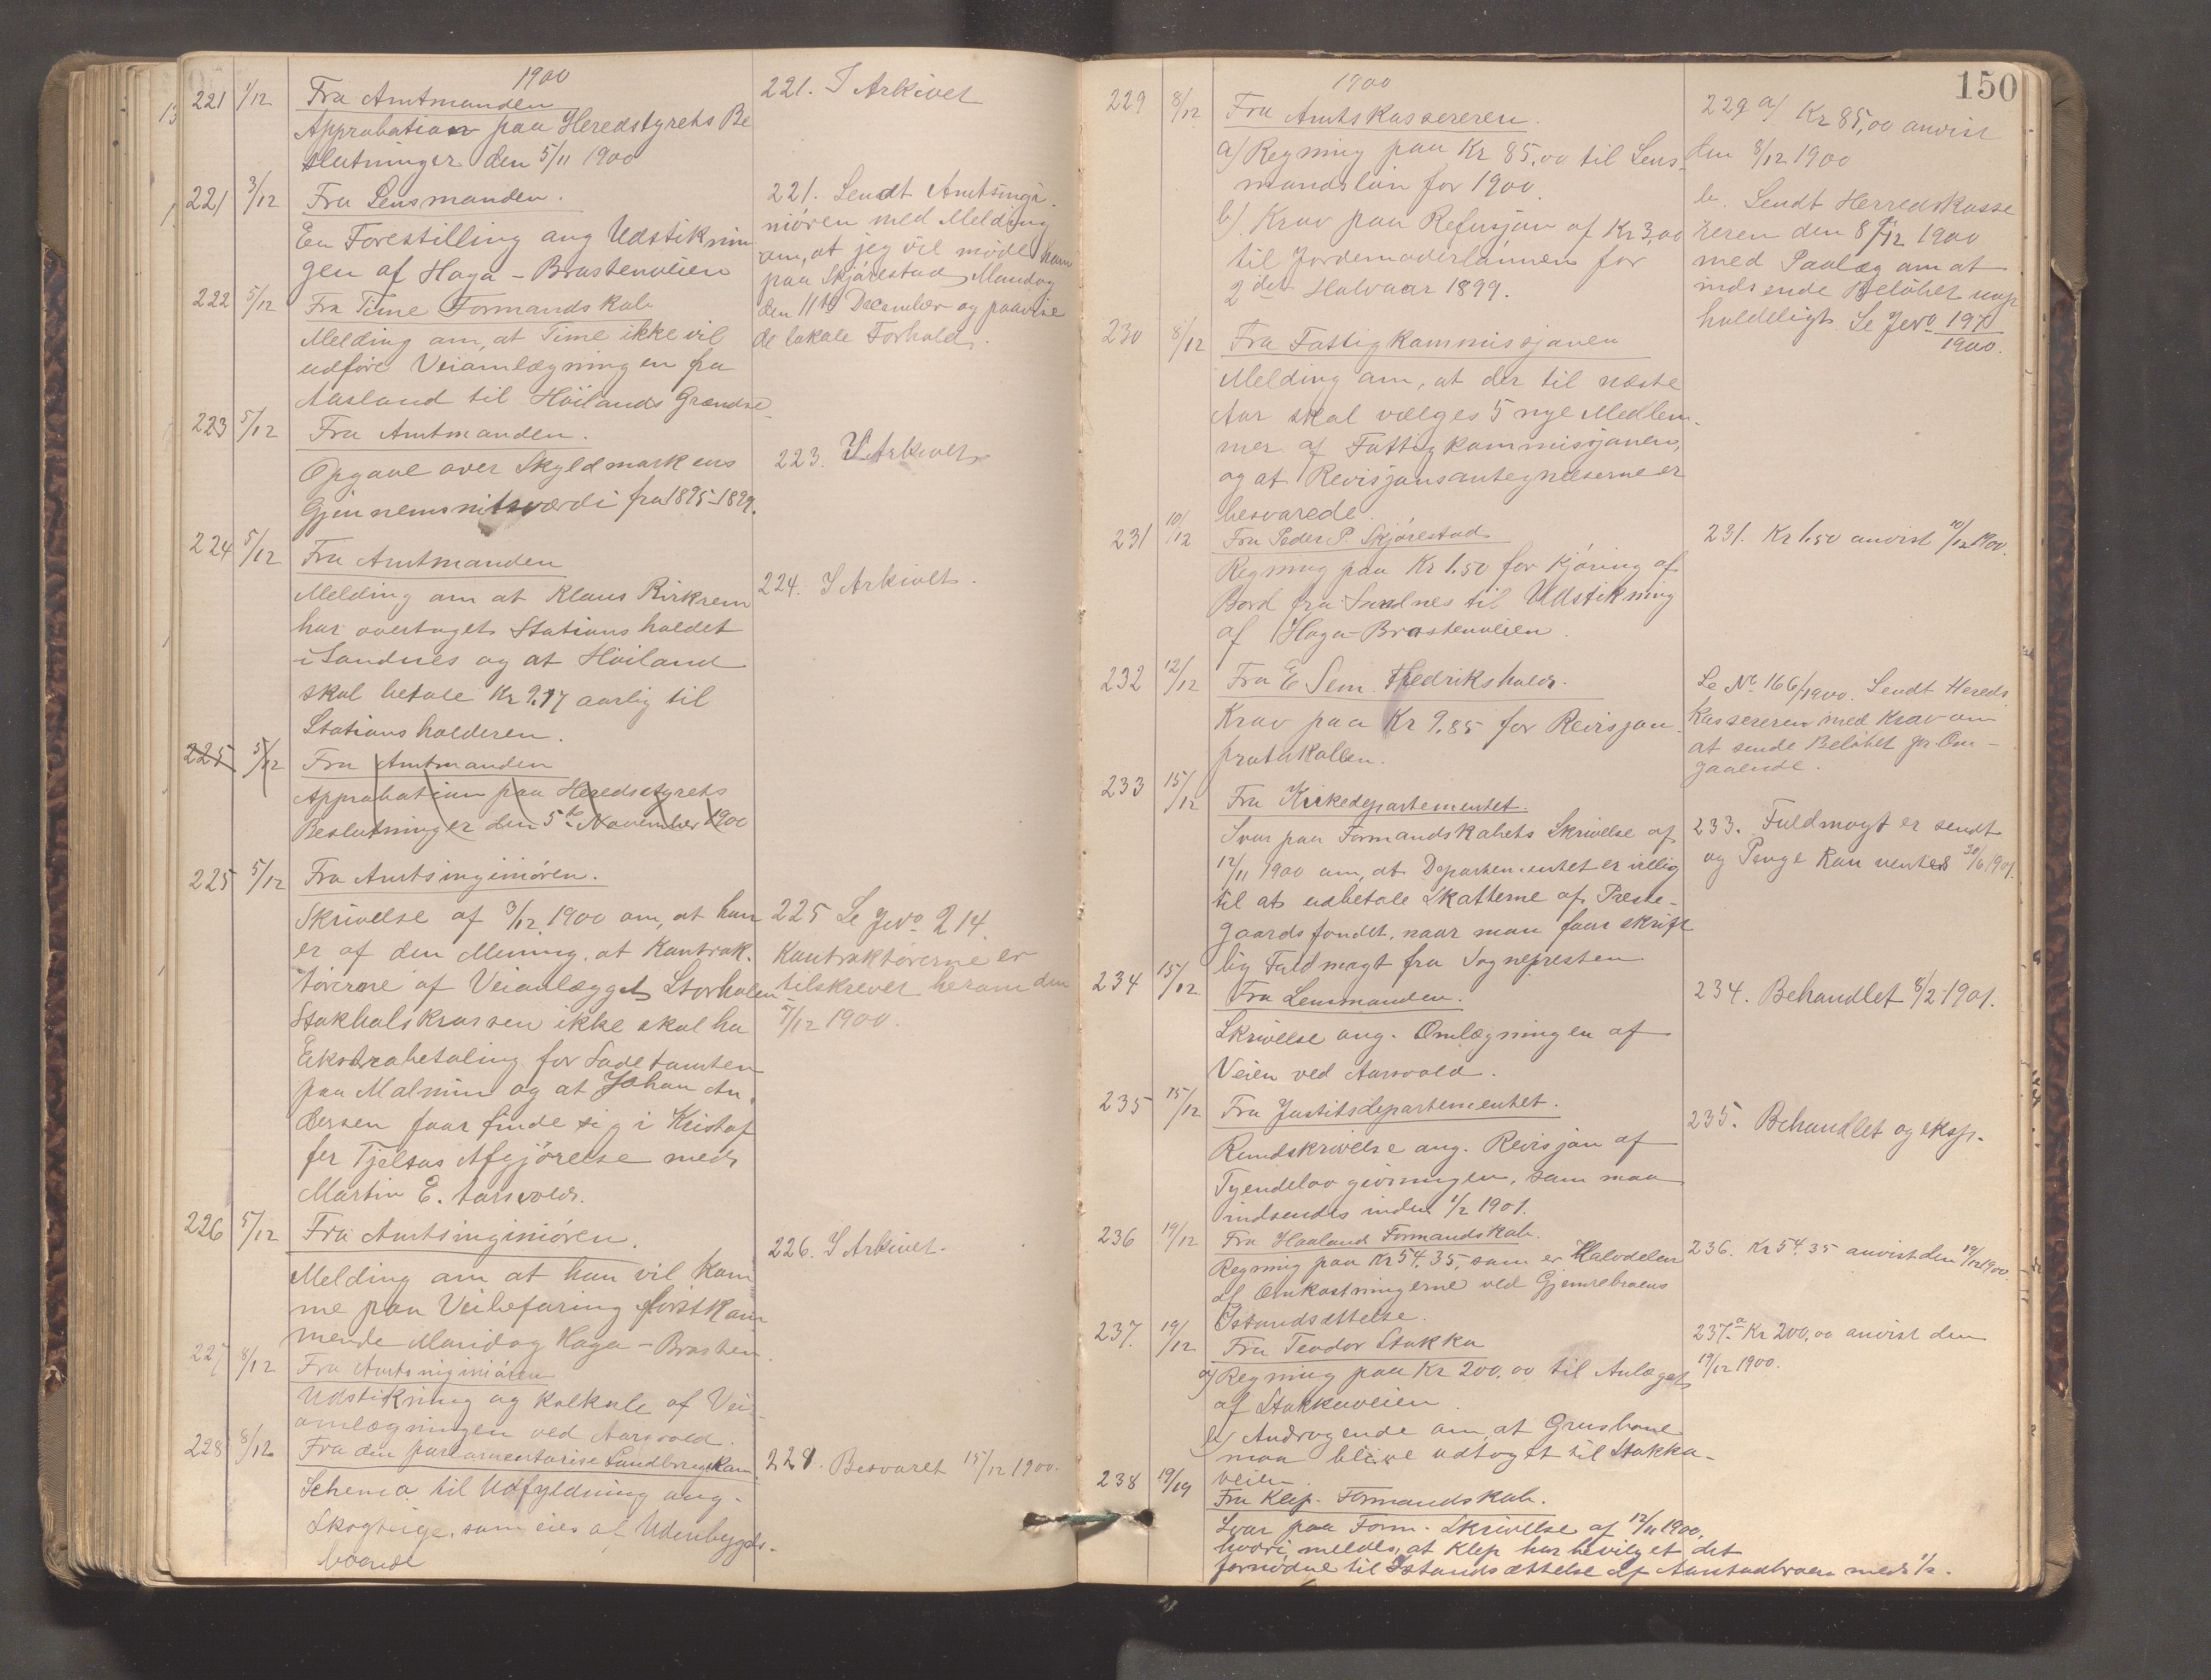 1900
221 1/12 Fra Amtmanden
Approbation paa Heredstyrets Be
slutninger den 5/11 1900
221. I Arkivet
221 3/12 Fra Lensmanden.
En Forestilling ang Udstiknin
gen af Haga - Brastenveien
221. Sendt Amtsingi-
niören med Melding
om, at jeg vil møde ham
paa Skjörestad Mandag
den 11te December og paavise
de lokale Forhold.
222 5/12 Fra Time Formandskab
Melding om, at Time ikke vil
udföre Veiomlægningen fra
Aasland til Höilands Grændse
223 5/12 Fra Amtmanden.
Opgave over Skyldmarkens
Gjennemsnitsværdi fra 1895-1899.
223. I Arkivet
224 5/12 Fra Amtmanden
Melding om at Klaus Birkrem
har overtaget Stationsholdet
i Sandnes og at Höiland
skal betale Kr 9.17 aarlig til
Stationsholderen.
224. I Arkivet.
225 5/12 Fra Amtmanden
Approbation paa Heredsstyrets
Beslutninger den 5te November 1900
225 5/12 Fra Amtsinginiören.
Skrivelse af 3/12 1900 om, at han
er af den Mening, at Kontrak-
törerne af Veianlægget Storholen
Stokholskrossen ikke skal ha
Ekstrabetaling for Sadetomten
paa Malmin og at Johan An
dersen faar finde sig i Kristof
fer Tjeltas Afgjörelse med
Martin E. Aarsvold.
225 Se Jvo 214.
Kontraktörerne er
tilskrevet herom den
5/12 1900.
226 5/12 Fra Amtsinginiören.
Melding om at han vil kom
me paa Veibefaring förstkom
mende Mandag Haga - Brasten.
226. I Arkivet.
227 8/12 Fra Amtsinginiören
Udstikning og Kalkule af Vei
omlægningen ved Aarsvold.
228 8/12 Fra den parlamentariske Landbrugskom
Schema til Udfyldning ang.
Skogteige, som eies af Udenbygds-
boende
228. Besvaret 15/12 1900.
150
1900
229 8/12 Fra Amtskassereren.
a) Regning paa Kr 85,00 til Lens-
mandslön for 1900
b). Krav paa Refusjon af Kr 3,00
til Jordemoderlönnen for
2det Halvaar 1899.
229 a) Kr 85,00 anvist
den 8/12 1900
b. Sendt Herredskasse
reren den 8/12 1900
med Paalæg om at
indsende Belöbet uop
holdeligt. Se Jvo 197/1900.
230 8/12 Fra Fattigkommissjonen
Melding om, at der til næste
Aar skal vælges 5 nye Medlem-
mer af Fattigkommissjonen,
og at Revisjonsantegnelserne er
besvarede.
231 10/12 Fra Peder P. Skjörestad
Regning paa Kr 1.50 for Kjöring af
Bord fra Sandnes til Udstikning
af Haga-Brastenveien.
231. Kr 1.50 anvist 10/12 1900.
232 12/12 Fra E Sem Fredrikshald.
Krav paa Kr 9.85 for Revisjons
protokollen.
Se No 166/1900. Sendt Hereds
kassereren med Krav om
at sende Belöbet pr. Om-
gaaende.
233 15/12 Fra Kirkedepartementet.
Svar paa Formandskabets Skrivelse af
12/11 1900 om, at Departementet er villig
til at udbetale Skatterne af Preste-
gaardsfondet, naar man faar skrift
lig Fuldmagt fra Sognepresten
233. Fuldmagt er sendt
og Penge kan ventes 30/6 1901.
234 15/12 Fra Lensmanden.
Skrivelse ang. Omlægningen af
Veien ved Aarsvold.
234. Behandlet 8/2 1901.
235 15/12 Fra Justitsdepartementet.
Rundskrivelse ang. Revisjon af
Tyendelovgivningen, som maa
indsendes inden 1/2 1901.
235. Behandlet og eksp.
236 19/12 Fra Haaland Formandskab.
Regning paa Kr 54.35, som er Halvdelen
af Omkostningerne ved Gjemrebroens
Istandsættelse.
236. Kr 54.35 anvist den 19/12 1900.
237. 19/12 Fra Teodor Stokka
a) Regning paa Kr 200,00 til Anlæget
af Stokkaveien.
b) Andragende om, at Grusbane
maa blive udtaget til Stokka-
veien
237.a Kr 200,00 anvist den
19/12 1900.
238 19/19 Fra Klep. Formandskab.
Svar paa Form. Skrivelse af 12/11 1900,
hvori meldes, at Klep har bevilget det
fornödne til Istandsættelse af Aarstadbroen med 1/2.